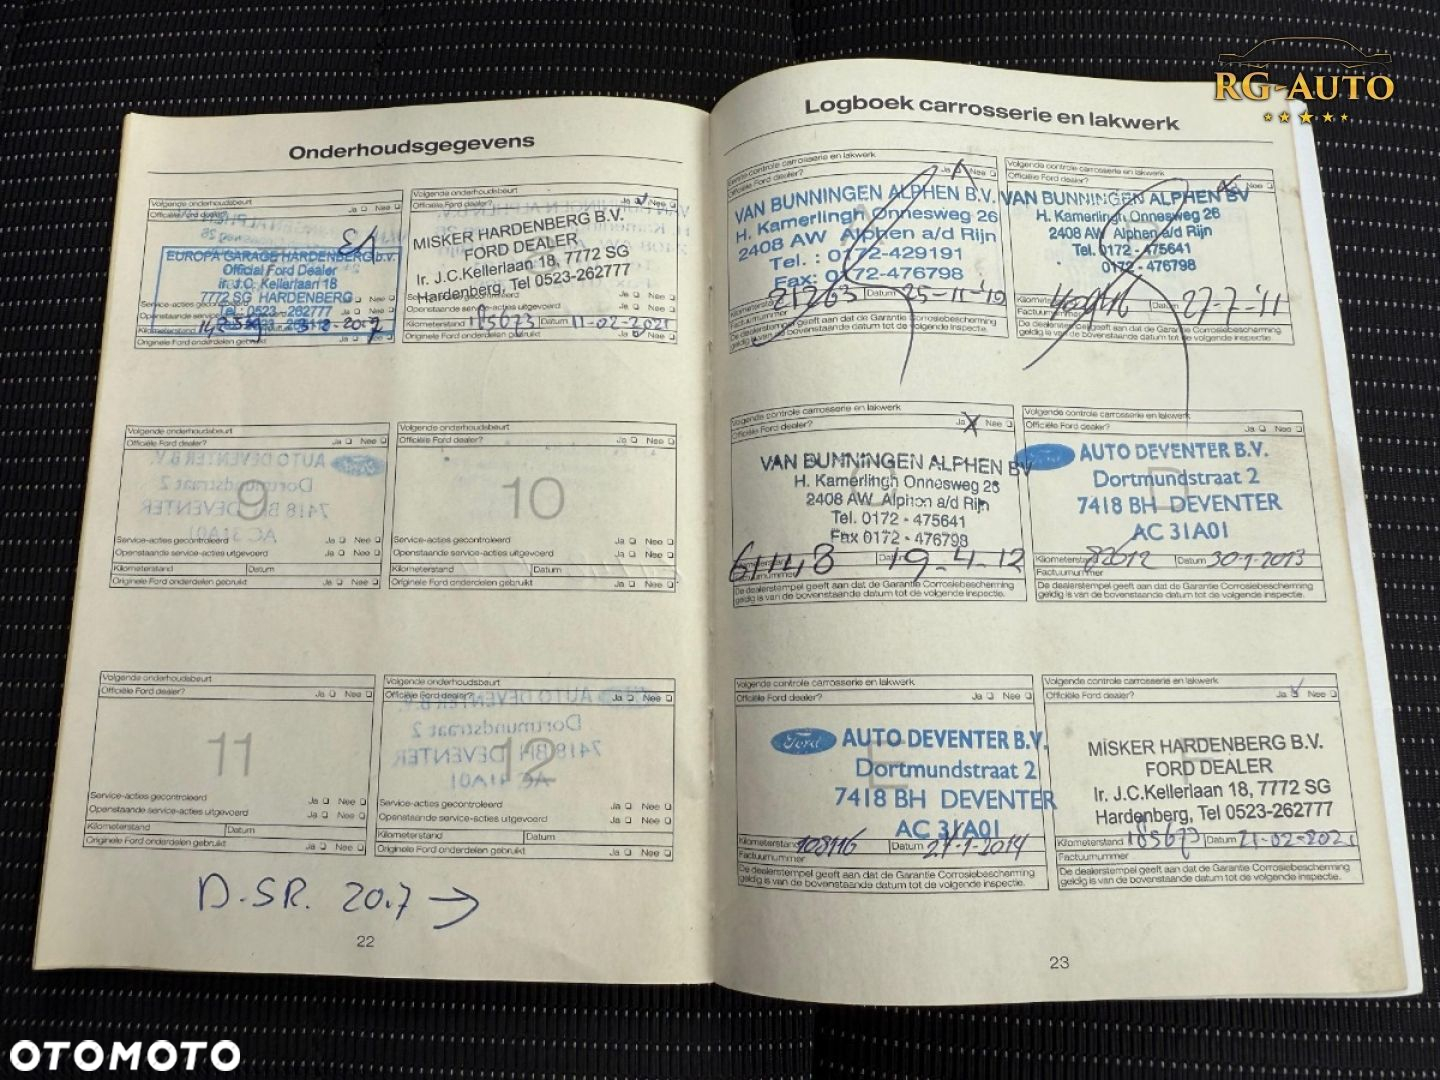 RG-AUTO
Onderhoudsgegevens
Volgende onderhoudsbeurt
Officiële Ford dealer? Ja Nee
EUROPA GARAGE HARDENBERG b.v.
Official Ford Dealer
Ir. J.C. Kellerlaan 18
7772 SG HARDENBERG
Tel.: 0523-262777
Kilometerstand Datum
Originele Ford onderdelen gebruikt Ja Nee
Volgende onderhoudsbeurt
Officiële Ford dealer? Ja Nee
MISKER HARDENBERG B.V.
FORD DEALER
Ir. J.C.Kellerlaan 18, 7772 SG
Hardenberg, Tel 0523-262777
Service-acties gecontroleerd Ja Nee
Openstaande service-acties uitgevoerd Ja Nee
Kilometerstand 185673 Datum 11-02-2021
Originele Ford onderdelen gebruikt Ja Nee
Volgende onderhoudsbeurt
Officiële Ford dealer? Ja Nee
9
Service-acties gecontroleerd Ja Nee
Openstaande service-acties uitgevoerd Ja Nee
Kilometerstand Datum
Originele Ford onderdelen gebruikt Ja Nee
Volgende onderhoudsbeurt
Officiële Ford dealer? Ja Nee
10
Service-acties gecontroleerd Ja Nee
Openstaande service-acties uitgevoerd Ja Nee
Kilometerstand Datum
Originele Ford onderdelen gebruikt Ja Nee
Volgende onderhoudsbeurt
Officiële Ford dealer? Ja Nee
11
Service-acties gecontroleerd Ja Nee
Openstaande service-acties uitgevoerd Ja Nee
Kilometerstand Datum
Originele Ford onderdelen gebruikt Ja Nee
Volgende onderhoudsbeurt
Officiële Ford dealer? Ja Nee
12
Service-acties gecontroleerd Ja Nee
Openstaande service-acties uitgevoerd Ja Nee
Kilometerstand Datum
Originele Ford onderdelen gebruikt Ja Nee
22
Logboek carrosserie en lakwerk
Eerste controle carrosserie en lakwerk
Officiële Ford dealer? Ja Nee
VAN BUNNINGEN ALPHEN B.V.
H. Kamerlingh Onnesweg 26
2408 AW Alphen a/d Rijn
Tel.: 0172-429191
Fax: 0172-476798
Kilometerstand 21263 Datum 25-11-'10
Factuurnummer
De dealerstempel geeft aan dat de Garantie Corrosiebescherming
geldig is van de bovenstaande datum tot de volgende inspectie.
Volgende controle carrosserie en lakwerk
Officiële Ford dealer? Ja Nee
VAN BUNNINGEN ALPHEN BV
H. Kamerlingh Onnesweg 26
2408 AW Alphen a/d Rijn
Tel. 0172-475641
0172-476798
Kilometerstand Datum 27-7-'11
Factuurnummer
De dealerstempel geeft aan dat de Garantie Corrosiebescherming
geldig is van de bovenstaande datum tot de volgende inspectie.
Volgende controle carrosserie en lakwerk
Officiële Ford dealer? Ja Nee
VAN BUNNINGEN ALPHEN BV
H. Kamerlingh Onnesweg 26
2408 AW Alphen a/d Rijn
Tel. 0172 - 475641
Fax 0172 - 476798
61148 Datum 19-4-12
De dealerstempel geeft aan dat de Garantie Corrosiebescherming
geldig is van de bovenstaande datum tot de volgende inspectie.
Volgende controle carrosserie en lakwerk
Officiële Ford dealer? Ja Nee
Ford AUTO DEVENTER B.V.
Dortmundstraat 2
7418 BH DEVENTER
AC 31A01
Kilometerstand 82612 Datum 30-1-2013
Factuurnummer
De dealerstempel geeft aan dat de Garantie Corrosiebescherming
geldig is van de bovenstaande datum tot de volgende inspectie.
Volgende controle carrosserie en lakwerk
Officiële Ford dealer? Ja Nee
Ford AUTO DEVENTER B.V.
Dortmundstraat 2
7418 BH DEVENTER
AC 31A01
Kilometerstand 108116 Datum 27-1-2014
Factuurnummer
De dealerstempel geeft aan dat de Garantie Corrosiebescherming
geldig is van de bovenstaande datum tot de volgende inspectie.
Volgende controle carrosserie en lakwerk
Officiële Ford dealer? Ja Nee
MISKER HARDENBERG B.V.
FORD DEALER
Ir. J.C.Kellerlaan 18, 7772 SG
Hardenberg, Tel 0523-262777
Kilometerstand 185673 Datum 21-02-2021
Factuurnummer
De dealerstempel geeft aan dat de Garantie Corrosiebescherming
geldig is van de bovenstaande datum tot de volgende inspectie.
23
OTOMOTO